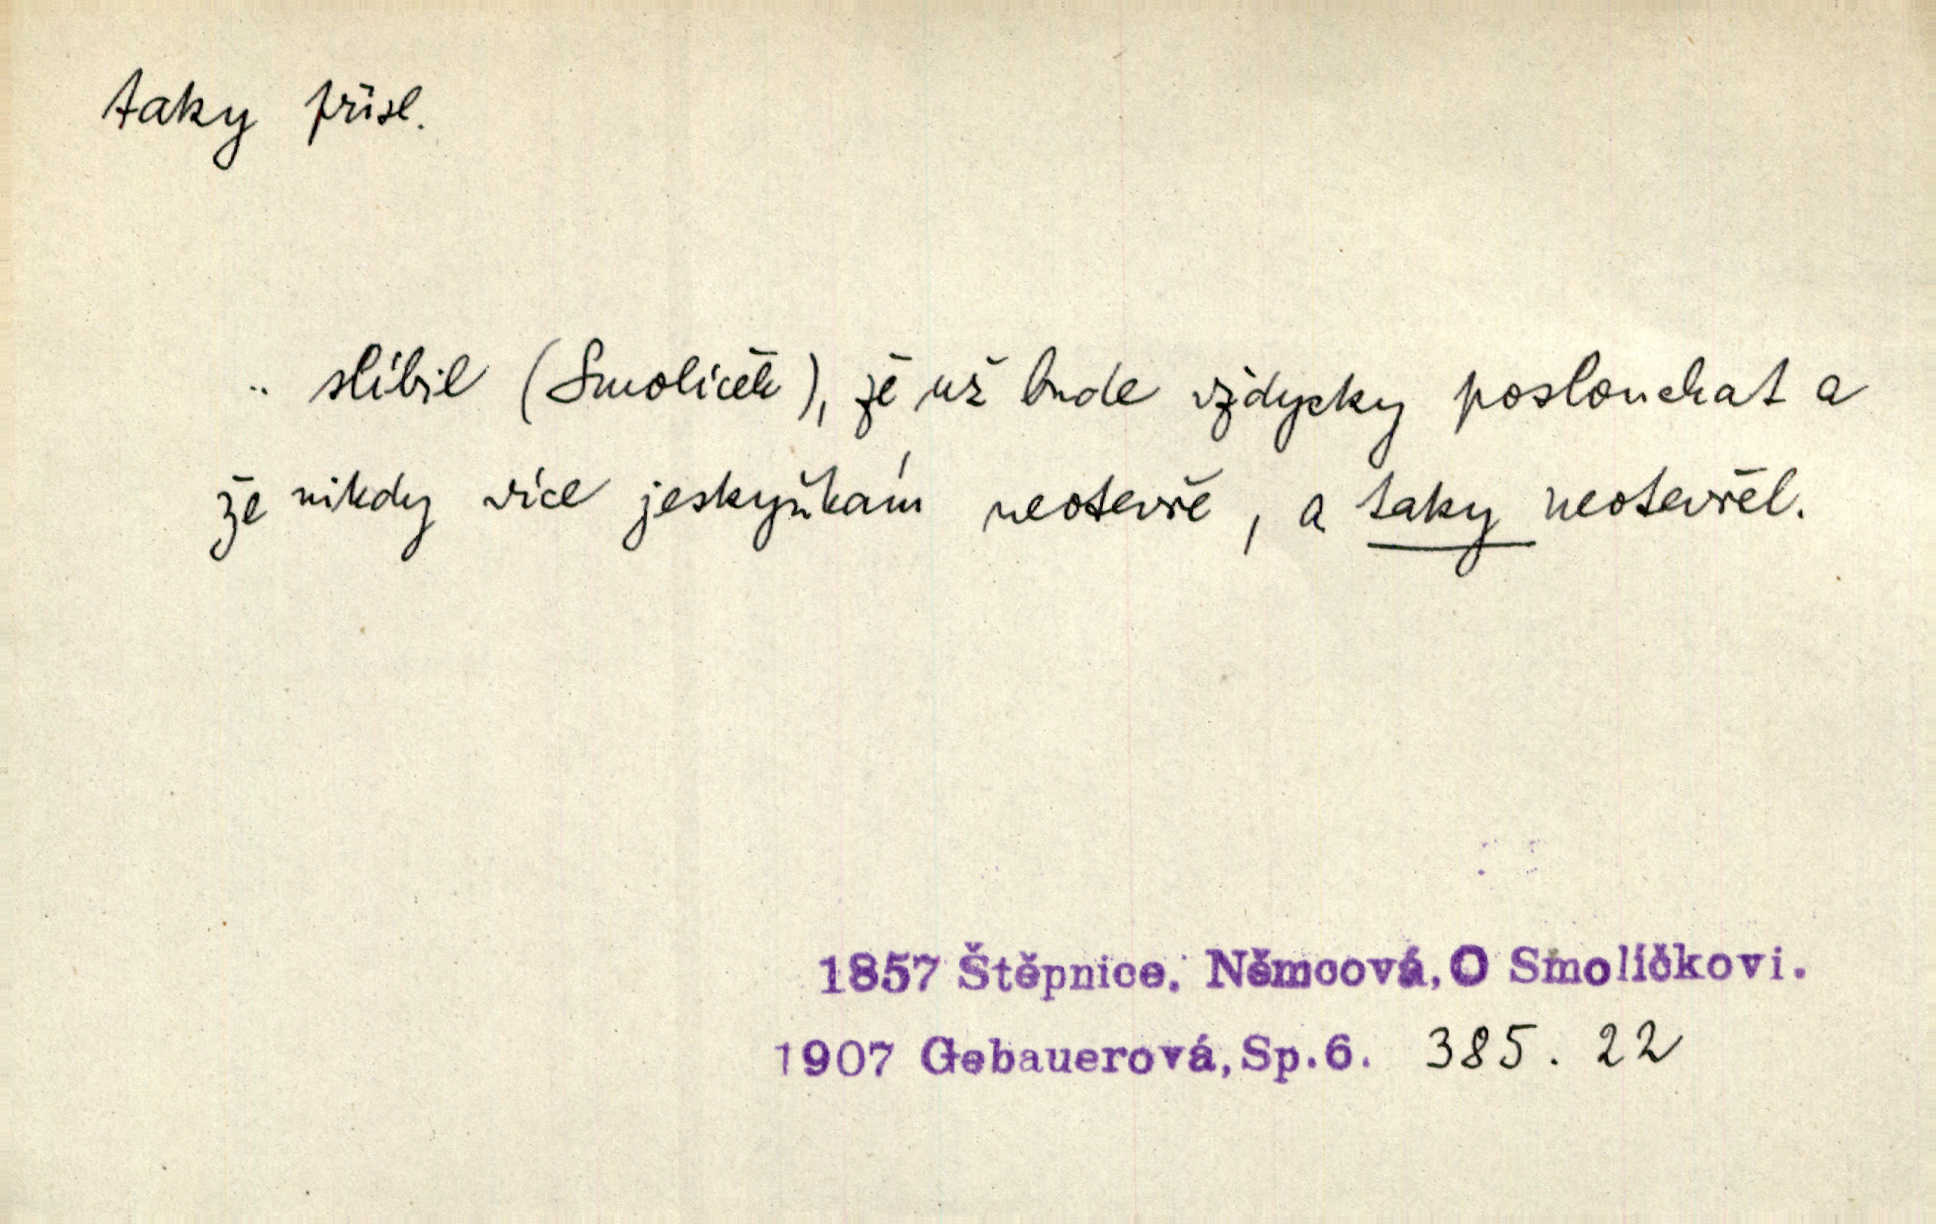 taky přísl.
.. slíbil (Smolíček), že už bude vždycky poslouchat a
že nikdy více jeskyňkám neotevře, a taky neotevřel.
1857 Štěpnice. Němcová, O Smolíčkovi.
1907 Gebauerová, Sp.6. 385. 22